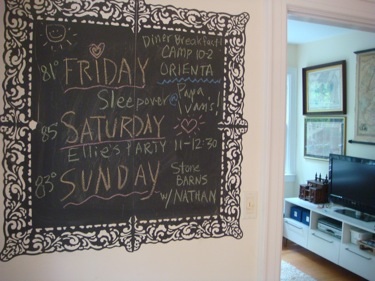 Diner Breakfast!
81° FRIDAY CAMP 10-2
ORIENTA
Sleepover @ Papa
Vamc!
85 SATURDAY
Ellie's PARTY 11-12:30
83° SUNDAY Stone
BARNS
w/ NATHAN